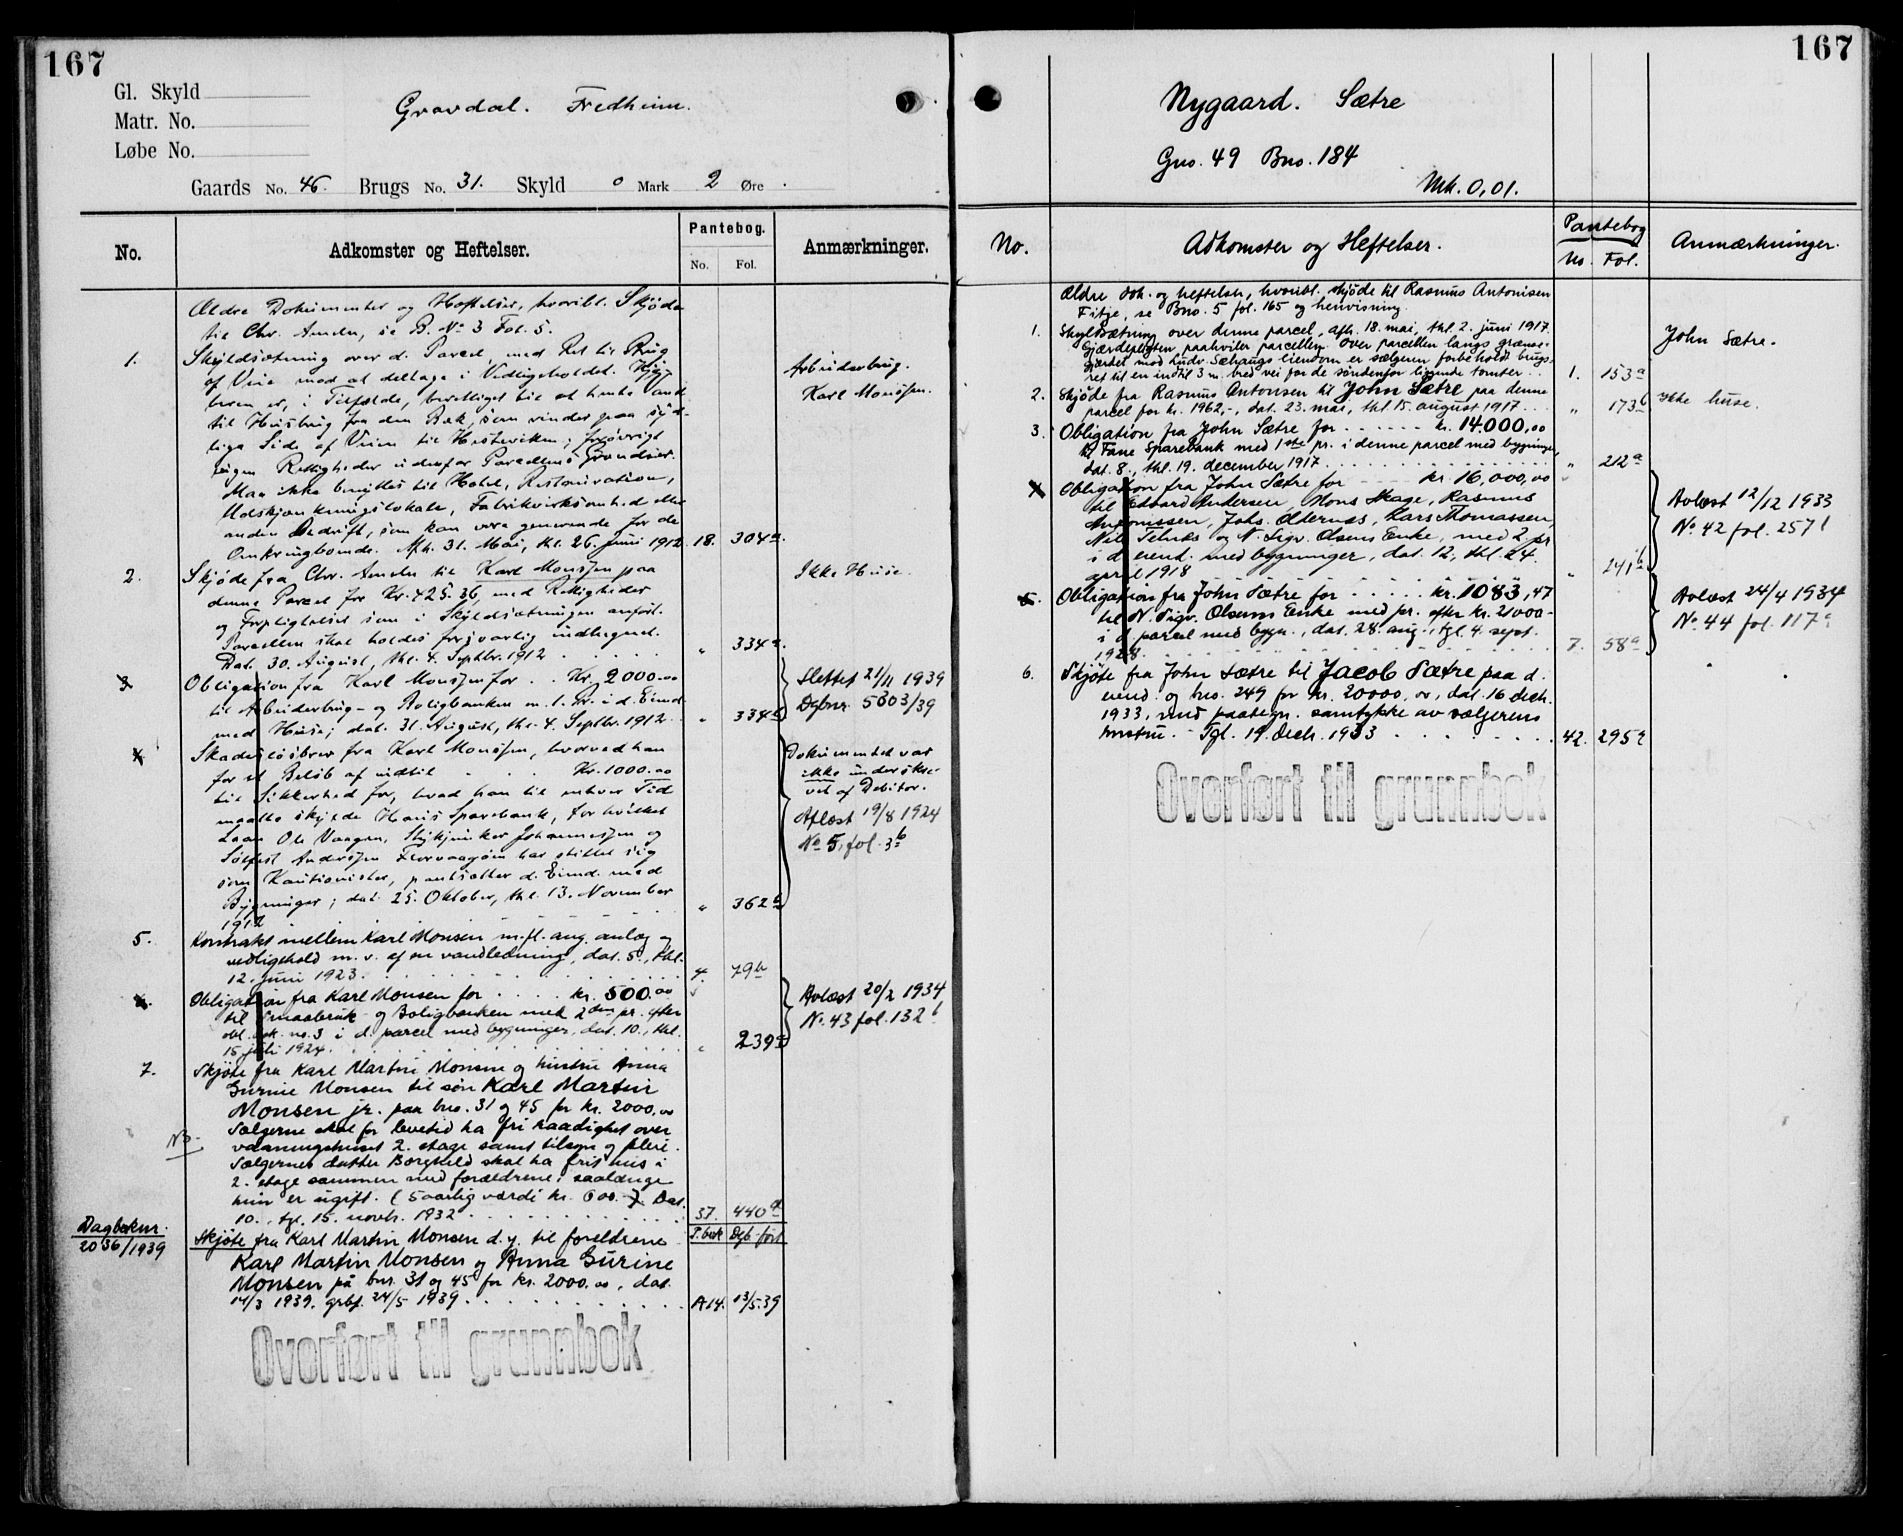 167
Gl. Skyld
Matr. No.
Løbe No.
Gravdal. Fredheim.
Gaards No. 46. Brugs No. 31. Skyld 0 Mark 2 Øre.
No.
Adkomster og Heftelser.
Pantebog.
No. Fol.
Anmærkninger.
Ældre Dokumenter og Heftelser, hvoribl. Skjøde
til Chr. Amdn, se B. No 3 Fol. 5.
1. Skyldsætning over d. Parcel, med Ret til Brug
af Veie mod at deltage i Vedligeholdet. Kjø-
beren er, i Tilfælde, berettiget til at hente Vand
til Husbrug fra den Bæk, som rinder paa syd-
lige Side af Veien til Hesteviken; forøvrigt
ingen Rettigheder udenfor Parcellens Grændser.
Maa ikke benyttes til Hotel, Restauration,
Udskjænkningslokale, Fabrikvirksomhed eller
anden Bedrift, som kan være generende for de
Omkringboende. Afh. 31. Mai, thl. 26. Juni 1912. 18. 304a.
Arbeiderbrug.
Karl Monsen.
2. Skjøde fra Chr. Amdn til Karl Monsen paa
denne Parcel for Kr. 425.36 med Rettigheder
og Forpligtelser som i Skyldsætningen anført.
Parcellen skal holdes forsvarlig indhegnet.
Dat. 30. August, thl. 4. Septbr. 1912 . . . . . " 334a.
Ikke Huse.
3. Obligation fra Karl Monsen for . . Kr. 2000.00
til Arbeiderbrug- og Boligbanken m. 1. Pr. i d. Eiend.
med Huse; dat. 31. August, thl. 4. Septbr. 1912. " 334b
Slettet 21/11 1939
Dgbnr. 5603/39
4. Skadesløsbrev fra Karl Monsen, hvorved han
for et Beløb af indtil . . . Kr. 1000.00
til Sikkerhed for, hvad han til enhver Tid
maatte skylde Haus Sparebank, for hvilket
Laan Ole Vaagen, Styrkjunker Johannessen og
Sølfest Anderssen Florvaagøen har stillet sig
som Kautionister, pantsætter d. Eiend. med
Bygninger; dat. 25. Oktober, thl. 13. November
1912 . . . " 362b
Dokumentet var
ikke underskre-
vet af Debitor.
Aflæst 19/8 1924
No 5, fol. 3b
5. Kontrakt mellem Karl Monsen m.fl. ang. anlæg og
vedligehold m.v. af en vandledning, dat. 5., thl.
12. juni 1923. 4. 79b
6. Obligation fra Karl Monsen for . . . . kr. 500.00
til Smaabruk- og Boligbanken med 2den pr. efter
obl. dok. no. 3 i d. parcel med bygninger, dat. 10., thl.
15 juli 1924. " 239b
Avlæst 20/2 1934
No. 43 fol. 132b
7. Skjøte fra Karl Martin Monsen og hustru Anna
Gurine Monsen til søn Karl Martin
Monsen jr. paa bno. 31 og 45 for kr. 2000.00
Sælgerne skal for levetid ha fri raadighet over
vaaningshuset 2. etage samt tilsyn og pleie.
Sælgernes datter Borghild skal ha frit hus i
2. etage sammen med forældrene, saalænge
hun er ugift. (5 aarlig værdi kr. 600.-). Dat.
10., tgl. 15. novbr. 1932 . . . 37. 440a
NB.
P. bok Dgb. ført
Dagboknr.
2036/1939
Skjøte fra Karl Martin Monsen d.y. til foreldrene
Karl Martin Monsen og Anna Gurine
Monsen på bnr. 31 og 45 for kr. 2000.00, dat.
14/3 1939. grbf. 24/5 1939 . . . A14. 13/5.39
Overført til grunnbok
167
Nygaard. Sætre
Gno. 49 Bno. 184
Mk. 0,01.
No.
Adkomster og Heftelser.
Pantebog
No. Fol.
Anmærkninger.
Ældre dok. og heftelser, hvoribl. skjøde til Rasmus Antonisen
Fitje, se Bno. 5 fol. 165 og henvisning.
1. Skyldsætning over denne parcel, afh. 18. mai, thl. 2. juni 1917.
Gjærdepligten paahviler parcellen. Over parcellen langs grænse-
gjærdet mod Ludv. Sæhaugs eiendom er sælgeren forbeholdt brugs-
ret til en indtil 3 m. bred vei for de søndenfor liggende tomter. . 1. 153a
John Sætre.
2. Skjøde fra Rasmus Antonsen til John Sætre paa denne
parcel for kr. 1962,-, dat. 23. mai, thl. 15. august 1917 . . . " 173b
Ikke huse.
3. Obligation fra John Sætre for . . . . . . kr. 14.000,00
til Fane Sparebank med 1ste pr. i denne parcel med bygninger,
dat. 8., thl. 19. december 1917 . . . " 212a
4. Obligation fra John Sætre for . . . . kr. 16,000,00
til Edvard Andersen, Mons Skage, Rasmus
Antonissen, Johs. Oldernæs, Lars Thomassen,
Nils Telnæs og N. Sigv. Olsens Enke, med 2 pr
i d. eiend. med bygninger, dat. 12., thl. 24.
april 1918 " 241b
Avlæst 12/12 1933
No. 42 fol. 257b
5. Obligation fra John Sætre for . . . . . kr. 1083,47
til N. Sigv. Olsens Enke med pr. efter kr. 21000-
i d. parcel med bygn., dat. 28. aug., tgl. 4. sept.
1928. . . . 7. 58a
Avlæst 24/4 1934
No. 44 fol. 117a
6. Skjøte fra John Sætre til Jacob Sætre paa d.
eiend. og bno. 249 for kr. 20000,00, dat. 16 decbr.
1933, med paategn. samtykke av sælgerens
hustru. - Tgl. 19. decbr. 1933 . . . 42. 295a
Overført til grunnbok